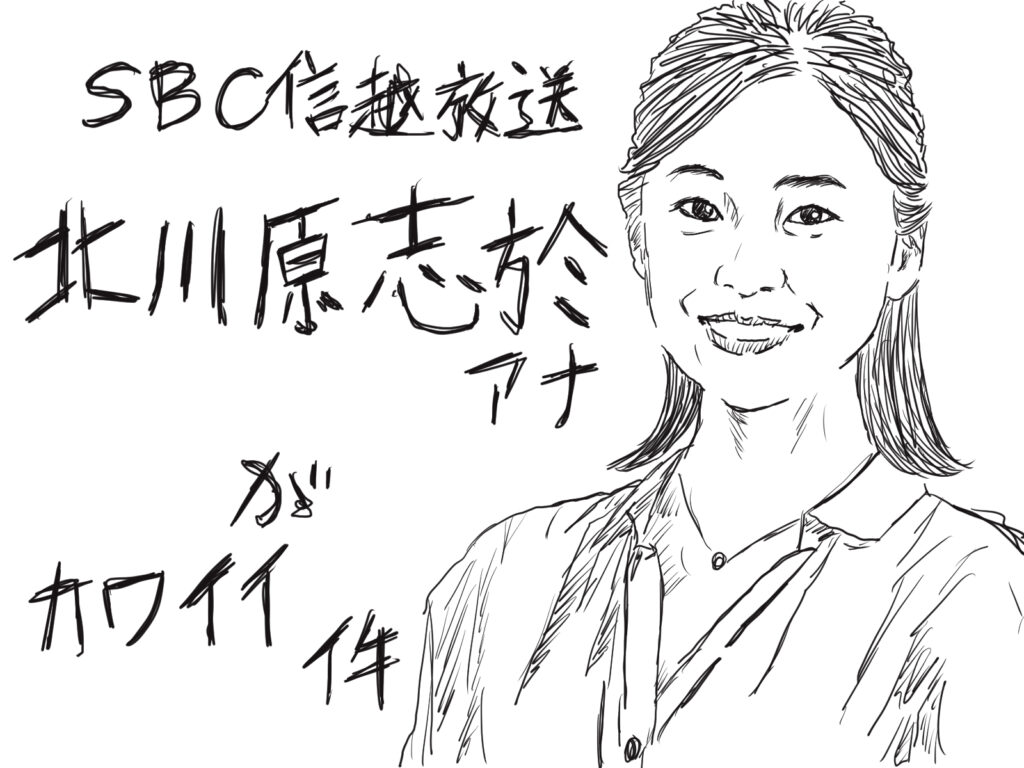 SBC信越放送
北川原志於
アナ
が
カワイイ
件